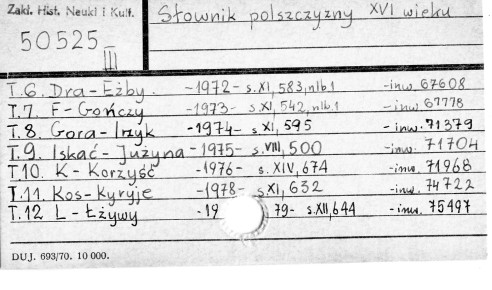 Zakł. Hist. Nauki i Kult.
50525
III
Słownik polszczyzny XVI wieku
T.6. Dra-Eżby. -1972- s.XI, 583, nlb.1 -inw. 67608
T.7. F-Gończy -1973- s.XI, 542, nlb.1 -inw. 67778
T.8. Gora-Irzyk -1974- s.XI, 595 -inw. 71379
T.9. Iskać-Jużyna -1975- s.VIII, 500 -inw. 71704
T10. K-Korzyść -1976- s.XIV, 674 -inw. 71968
T.11. Kos-Kyryje -1978- s.XI, 632 -inw. 74722
T.12 L-Łżywy -19 79- s.XII, 644 -inw. 75497
DUJ. 693/70. 10 000.